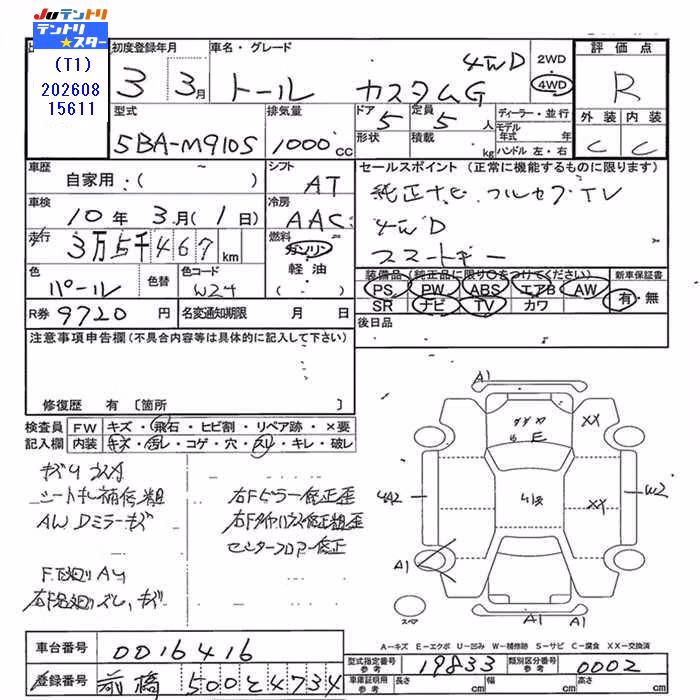 Juテントリ
テントリ★スター
(T1)
202608
15611
初度登録年月
3 3月
車名・グレード
トール カスタムG 4WD
2WD
4WD
評価点
R
型式
5BA-M910S
排気量
1000cc
ドア
5
定員
5人
形状
積載
kg
ディーラー・並行
モデル年式 年
ハンドル 左・右
外装 内装
C C
車歴
自家用:( ~ )
シフト
AT
セールスポイント (正常に機能するものに限ります)
純正ナビ フルセグTV
4WD
スマートキー
車検
10年3月(1日)
冷房
AAC
走行
3万5千467km
燃料
ガソリン
軽油
( - )
色
パール
色替
色コード
W24
装備品(純正品に限り○をつけてください)
PS PW ABS エアB AW
SR ナビ TV カワ
新車保証書
有・無
R券 9720円
名変通知期限 月 日
後日品
注意事項申告欄(不具合内容等は具体的に記入して下さい)
修復歴 有〔箇所 〕
検査員記入欄
FW キズ・飛石・ヒビ割・リペア跡・×要
内装 キズ・汚レ・コゲ・穴・スレ・キレ・破レ
シートキレ補修粗
AWDミラーキズ
右Fピラー修正歪
右Fタイヤハウス修正粗歪
センターフロアー修正
A1
XX
E
4A2
W2
XX
A1
A1
A1
スペア
A-キズ E-エクボ U-凹み W-補修跡 S-サビ C-腐食 XX-交換済
車台番号
0016416
登録番号
前橋 500 そ 4734
型式指定番号
参考
19833
類別区分番号
参考
0002
車庫証明用
参考
長さ cm
幅 cm
高さ cm